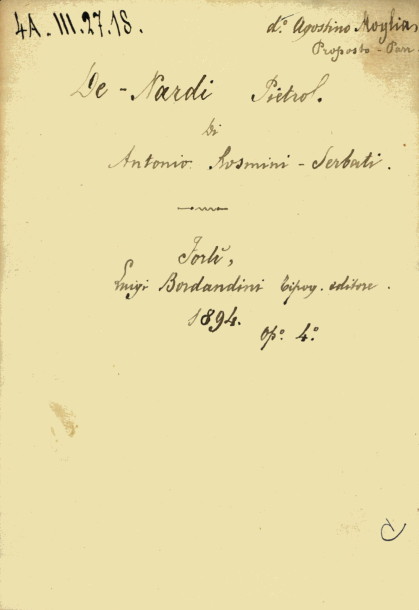 4A. III. 27. 18.
d.º Agostino Moglia,
Proposto - Parr
De-Nardi Pietrol.
Di
Antonio Rosmini-Serbati.
Forlì,
Luigi Bordandini tipog. editore.
1894.
Op.º 4.º
C